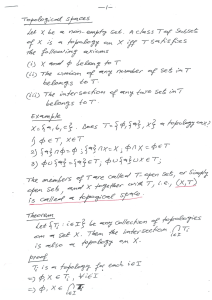 -1-
Topological spaces
Let X be a non-empty set. A class T of subsets
of X is a topology on X iff T satisfies
the following axioms
(i) X and φ belong to T
(ii) The union of any number of sets in T
belongs to T
(iii) The intersection of any two sets in T
belongs to T
Example
X={a,b,c}. Does T={φ,{a},X} a topology on X?
1) φ∈T, X∈T
2) {a}∩φ=φ, {a}∩X=X, φ∩X=φ∈T
3) φ∪{a}={a}∈T, φ∪{a}∪X∈T;
The members of T are called T-open sets, or simply
open sets, and X together with T, i.e, (X,T)
is called a topological space.
Theorem
Let {Ti : i∈I} be any collection of topologies
on a set X. Then the intersection ∩ Ti
i∈I
is also a topology on X.
proof
Ti is a topology for each i∈I
⇒ φ,X∈Ti, ∀i∈I
⇒ φ, X ∈ ∩ Ti
i∈I